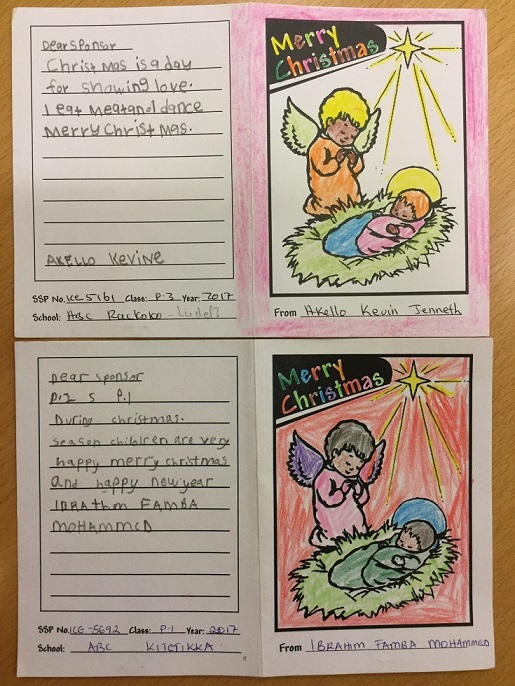 Dear Sponsor
Christmas is a day
for showing love.
I eat meat and dance
Merry Christmas.
AKELLO KEVINE
SSP No. ICE-5161 Class: P.3 Year: 2017
School: ABC Rackoko -
Merry
Christmas
From Akello Kevin Jenneth
Dear Sponsor
P.1 S P.1
During christmas.
season children are very
happy merry christmas
and happy new year
IBRAthim FAMBA
MOHAMMED
SSP No. ICE-5692 Class: P.1 Year: 2017
School: ABC KITETIKKA
Merry
Christmas
From IBRAHIM FAMBA MOHAMMED